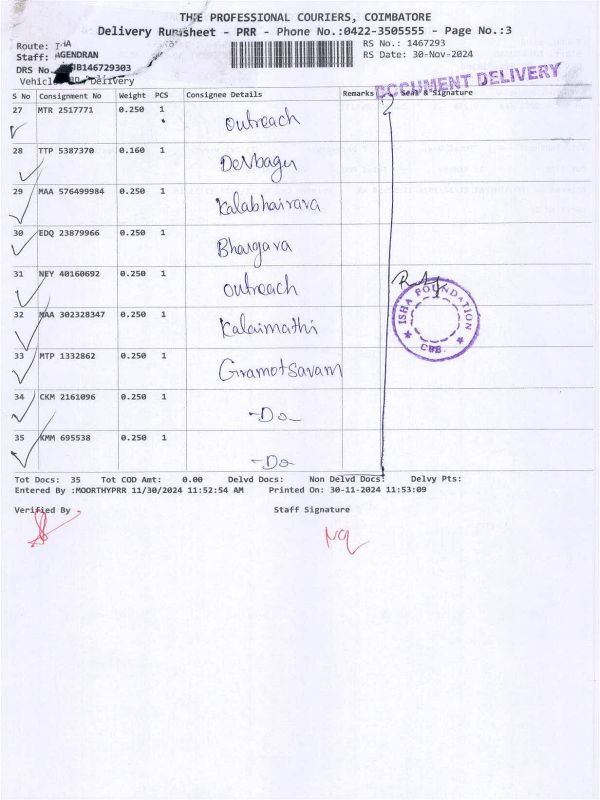 THE PROFESSIONAL COURIERS, COIMBATORE
Delivery Runsheet - PRR - Phone No.:0422-3505555 - Page No.:3
Route:
RS No.: 1467293
Staff: AGENDRAN
RS Date: 30-Nov-2024
DRS No. B146729303
Vehicle Delivery
DOCUMENT DELIVERY
S No Consignment No Weight PCS Consignee Details Remarks Seal & Signature
27 MTR 2517771 0.250 1 Outreach
28 TTP 5387370 0.160 1 Devbagu
29 MAA 576499984 0.250 1 Kalabhairava
30 EDQ 23879966 0.250 1 Bhargava
31 NEY 40160692 0.250 1 Outreach
32 MAA 302328347 0.250 1 Kalaimathi
33 MTP 1332862 0.250 1 Gramotsavam
34 CKM 2161096 0.250 1 -Do-
35 KMM 695538 0.250 1 -Do-
ISHA FOUNDATION
CBE.
Tot Docs: 35 Tot COD Amt: 0.00 Delvd Docs: Non Delvd Docs: Delvy Pts:
Entered By :MOORTHYPRR 11/30/2024 11:52:54 AM Printed On: 30-11-2024 11:53:09
Verified By Staff Signature